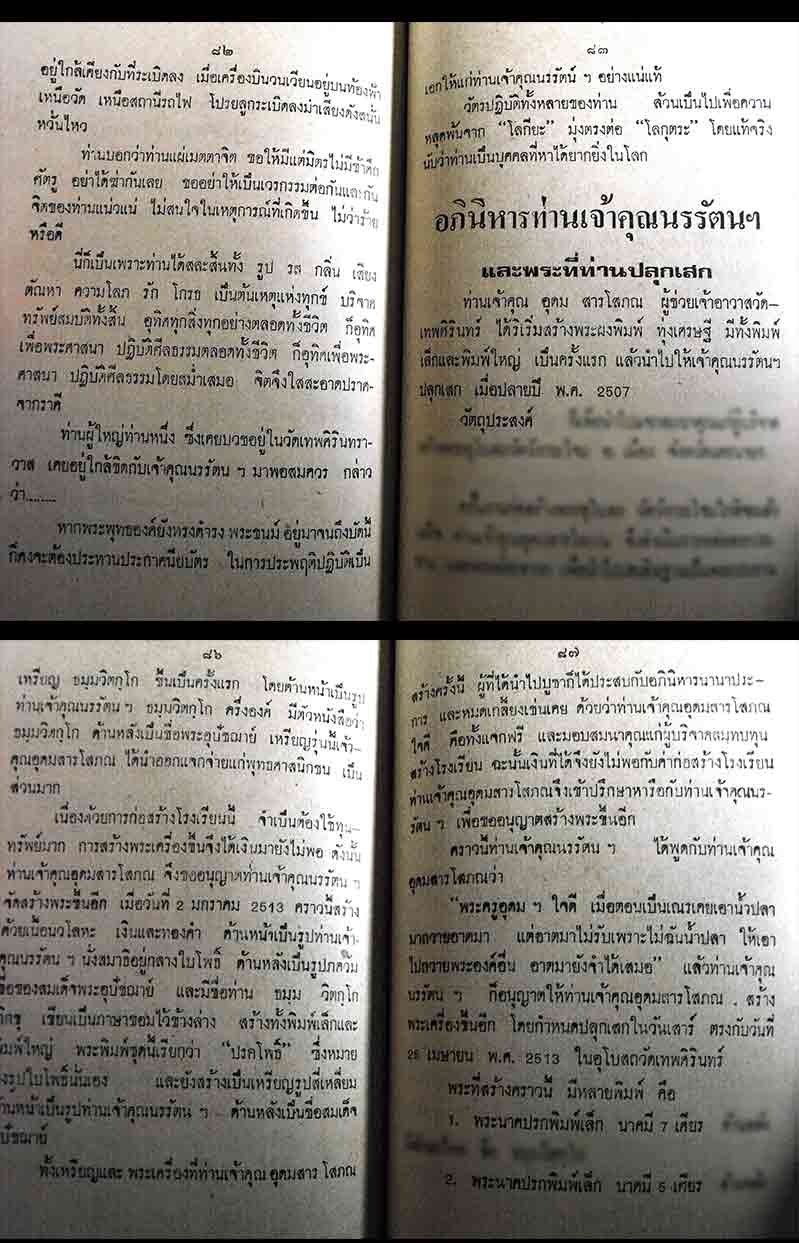 ๘๒
อยู่ใกล้เคียงกับที่ระเบิดลง เมื่อเครื่องบินวนเวียนอยู่บนท้องฟ้า
เหนือวัด เหนือสถานีรถไฟ โปรยลูกระเบิดลงมาเสียงดังสนั่น
หวั่นไหว
ท่านบอกว่าท่านแผ่เมตตาจิต ขอให้มีแต่มิตรไม่มีข้าศึก
ศัตรู อย่าได้ซ่ากันเลย ขออย่าให้เป็นเวรกรรมต่อกันและกัน
จิตของท่านแน่วแน่ ไม่สนใจในเหตุการณ์ที่เกิดขึ้น ไม่ว่าร้าย
หรือดี
นี่ก็เป็นเพราะท่านได้สละสิ้นทั้ง รูป รส กลิ่น เสียง
ตัณหา ความโลภ รัก โกรธ เป็นต้นเหตุแห่งทุกข์ บริจาค
ทรัพย์สมบัติทั้งสิ้น อุทิศทุกสิ่งทุกอย่างตลอดทั้งชีวิต ก็อุทิศ
เพื่อพระศาสนา ปฏิบัติศีลธรรมตลอดทั้งชีวิต ก็อุทิศเพื่อพระ-
ศาสนา ปฏิบัติศีลธรรมโดยสม่ำเสมอ จิตจึงใสสะอาดปราศ-
จากราคี
ท่านผู้ใหญ่ท่านหนึ่ง ซึ่งเคยบวชอยู่ในวัดเทพศิรินทรา-
วาส เคยอยู่ใกล้ชิดกับเจ้าคุณนรรัตน ฯ มาพอสมควร กล่าว
ว่า........
หากพระพุทธองค์ยังทรงดำรง พระชนม์ อยู่มาจนถึงบัดนี้
ก็คงจะต้องประทานประกาศนียบัตร ในการประพฤติปฏิบัติเป็น
๘๓
เอกให้แก่ท่านเจ้าคุณนรรัตน์ ฯ อย่างแน่แท้
วัตรปฏิบัติทั้งหลายของท่าน ล้วนเป็นไปเพื่อความ
หลุดพ้นจาก “โลกียะ” มุ่งตรงต่อ “โลกุตระ” โดยแท้จริง
นับว่าท่านเป็นบุคคลที่หาได้ยากยิ่งในโลก
อภินิหารท่านเจ้าคุณนรรัตนฯ
และพระที่ท่านปลุกเสก
ท่านเจ้าคุณ อุดม สารโสภณ ผู้ช่วยเจ้าอาวาสวัด-
เทพศิรินทร์ ได้ริเริ่มสร้างพระผงพิมพ์ ทุ่งเศรษฐี มีทั้งพิมพ์
เล็กและพิมพ์ใหญ่ เป็นครั้งแรก แล้วนำไปให้เจ้าคุณนรรัตนฯ
ปลุกเสก เมื่อปลายปี พ.ศ. 2507
วัตถุประสงค์
๘๖
เหรียญ ธมฺมวิตกฺโก ขึ้นเป็นครั้งแรก โดยด้านหน้าเป็นรูป
ท่านเจ้าคุณนรรัตน ฯ ธมฺมวิตกฺโก ครึ่งองค์ มีตัวหนังสือว่า
ธมฺมวิตกฺโก ด้านหลังเป็นชื่อพระอุปัชฌาย์ เหรียญรุ่นนี้เจ้า-
คุณอุดมสารโสภณ ได้นำออกแจกจ่ายแก่พุทธศาสนิกชน เป็น
ส่วนมาก
เนื่องด้วยการก่อสร้างโรงเรียนนี้ จำเป็นต้องใช้ทุน-
ทรัพย์มาก การสร้างพระเครื่องขึ้นจึงได้เงินมายังไม่พอ ดังนั้น
ท่านเจ้าคุณอุดมสารโสภณ จึงขออนุญาตท่านเจ้าคุณนรรัตน ฯ
จัดสร้างพระขึ้นอีก เมื่อวันที่ 2 มกราคม 2513 คราวนี้สร้าง
ด้วยเนื้อนวโลหะ เงินและทองคำ ด้านหน้าเป็นรูปท่านเจ้า-
คุณนรรัตน ฯ นั่งสมาธิอยู่กลางใบโพธิ์ ด้านหลังเป็นรูปภควัม
ชื่อของสมเด็จพระอุปัชฌาย์ และมีชื่อท่าน ธมฺม วิตกฺโก
ภิกขุ เขียนเป็นภาษาขอมไว้ข้างล่าง สร้างทั้งพิมพ์เล็กและ
พิมพ์ใหญ่ พระพิมพ์ชุดนี้เรียกว่า “ปรกโพธิ์” ซึ่งหมาย
ถึงรูปใบโพธิ์นั่นเอง และยังสร้างเป็นเหรียญรูปสี่เหลี่ยม
ด้านหน้าเป็นรูปท่านเจ้าคุณนรรัตน ฯ ด้านหลังเป็นชื่อสมเด็จ
อุปัชฌาย์
ทั้งเหรียญและ พระเครื่องที่ท่านเจ้าคุณ อุดมสาร โสภณ
๘๗
สร้างครั้งนี้ ผู้ที่ได้นำไปบูชาก็ได้ประสบกับอภินิหารนานาประ-
การ และหมดเกลี้ยงเช่นเคย ด้วยว่าท่านเจ้าคุณอุดมสารโสภณ
ใจดี คือทั้งแจกฟรี และมอบสมนาคุณแก่ผู้บริจาคสมทบทุน
สร้างโรงเรียน ฉะนั้นเงินที่ได้จึงยังไม่พอกับค่าก่อสร้างโรงเรียน
ท่านเจ้าคุณอุดมสารโสภณจึงเข้าปรึกษาหารือกับท่านเจ้าคุณนร-
รัตน ฯ เพื่อขออนุญาตสร้างพระขึ้นอีก
คราวนี้ท่านเจ้าคุณนรรัตน ฯ ได้พูดกับท่านเจ้าคุณ
อุดมสารโสภณว่า
“พระครูอุดม ฯ ใจดี เมื่อตอนเป็นเณรเคยเอาน้ำปลา
มาถวายอาตมา แต่อาตมาไม่รับเพราะไม่ฉันน้ำปลา ให้เอา
ไปถวายพระองค์อื่น อาตมายังจำได้เสมอ” แล้วท่านเจ้าคุณ
นรรัตน ฯ ก็อนุญาตให้ท่านเจ้าคุณอุดมสารโสภณ สร้าง
พระเครื่องขึ้นอีก โดยกำหนดปลุกเสกในวันเสาร์ ตรงกับวันที่
25 เมษายน พ.ศ. 2513 ในอุโบสถวัดเทพศิรินทร์
พระที่สร้างคราวนี้ มีหลายพิมพ์ คือ
1. พระนาคปรกพิมพ์เล็ก นาคมี 7 เศียร
2. พระนาคปรกพิมพ์เล็ก นาคมี 5 เศียร